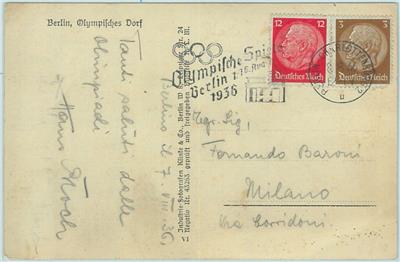 Berlin, Olympisches Dorf
Tanti saluti dalle
Olimpiadi
Hans
Berlino il 7. VIII. 36.
Industrie-Fotografen Klinke & Co., Berlin W 8, 24
Negativ Nr. 43253 geprüft und freigegeben
VI
Olympische Spiele
Berlin 1.-16. Aug.
1936
12 12
Deutsches Reich
3 3
Deutsches Reich
BERLIN-CHARLOTTENBURG 2
u
Egr. Sig.
Fernando Baroni
Milano
Via Corridoni